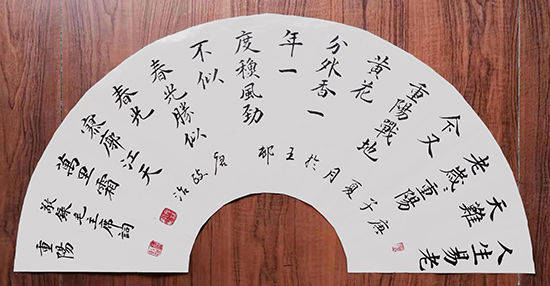 人生易老
天難
老歲々重陽
今又
重陽戰地
黃花
分外香一
年一
度穐風勁
不似
春光勝似
春光
寥廓江天
萬里霜
敬錄毛主席詞
重陽
庚子夏月於王邨
政治